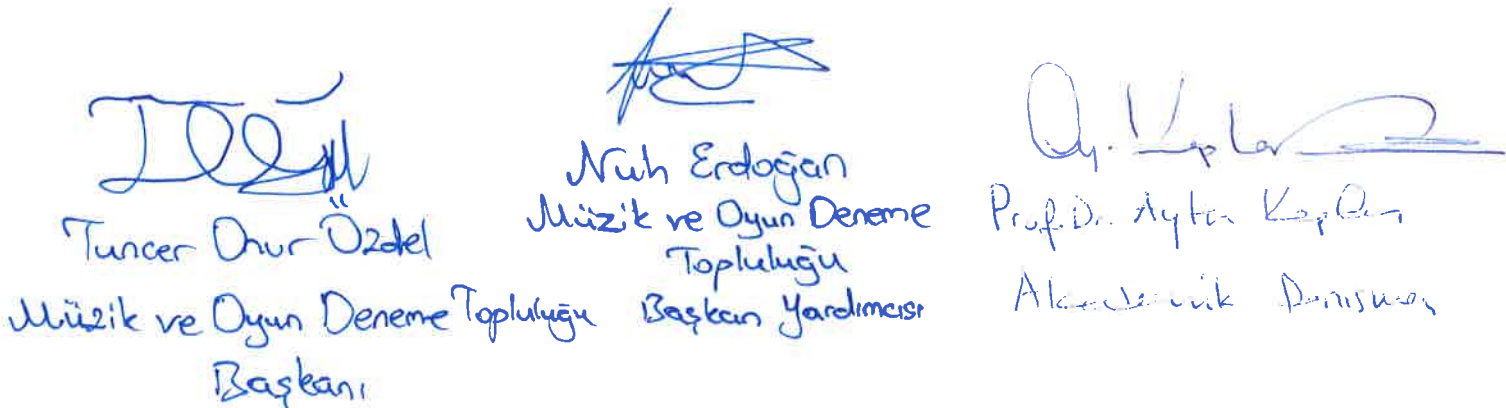 Tuncer Onur Özdel
Müzik ve Oyun Deneme Topluluğu
Başkanı
Nuh Erdoğan
Müzik ve Oyun Deneme
Topluluğu
Başkan Yardımcısı
Ay. Kaplan
Prof. Dr. Kaplan
Akademik Danışman